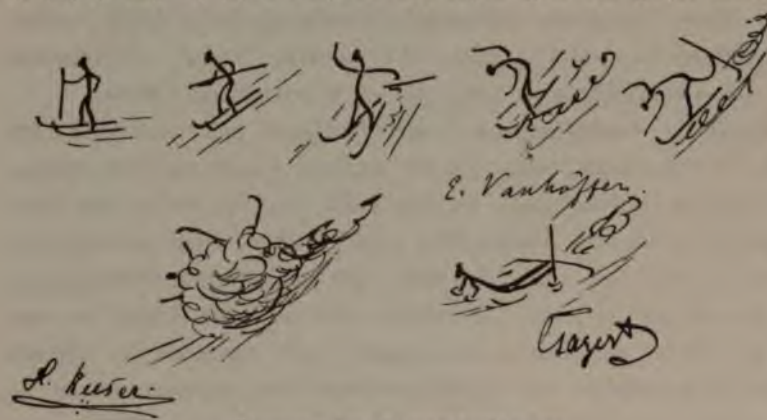 E. Vanhöffen.
Gazert
H. Ruser.